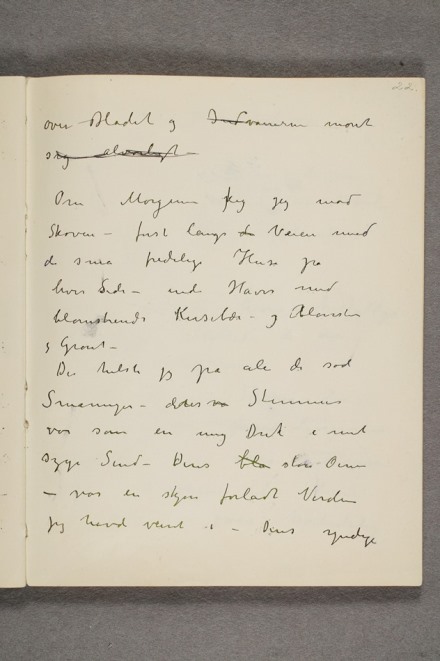 22.
over Bladet og vanerne
Om Morgenen jeg mod
Skoven – først langs Veien med
de små fredelige Huse på
hver Side – med Haver med
blomstrende Kirsebær – og Blomster
og Grønt –
Der hilste jeg på alle de sød
Småunger – Stemmer
var som en ung Drik i mit
syge Sind – Deres blå store Øine
– var en skjøn forladt Verden
jeg havd været i – Deres yndige